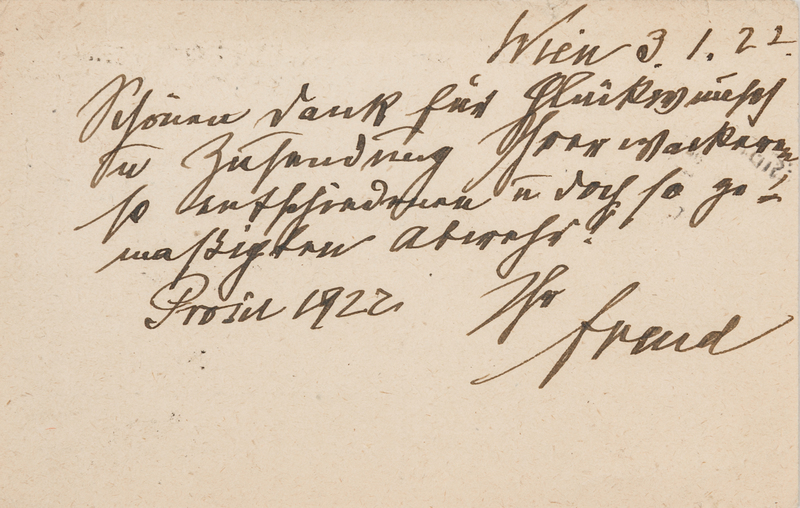 Wien 3. 1. 22.
Schönen Dank für Glückwunsch
u Zusendung Ihrer wackeren,
so entschiedenen u doch so ge-
maßigten Abwehr!
Prosit 1922
Ihr
Freud